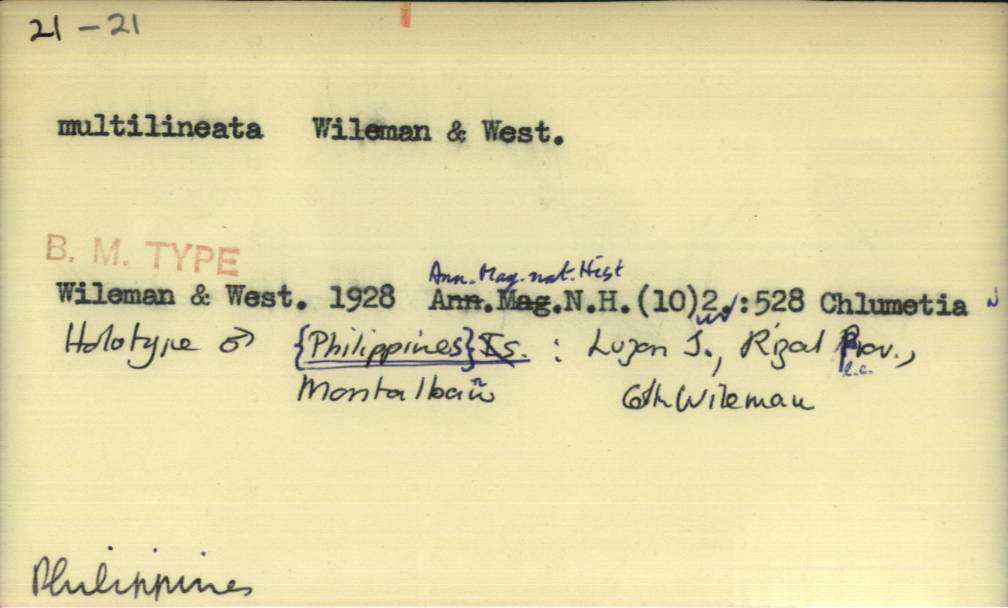 21-21
multilineata Wileman & West.
B. M. TYPE
Ann. Mag. nat. Hist
Wileman & West. 1928 Ann. Mag. N.H. (10)2.:528 Chlumetia
Holotype ♂ {Philippines} Is. : Luzon I., Rizal Prov.,
l.c.
Montalban Wileman
Philippines